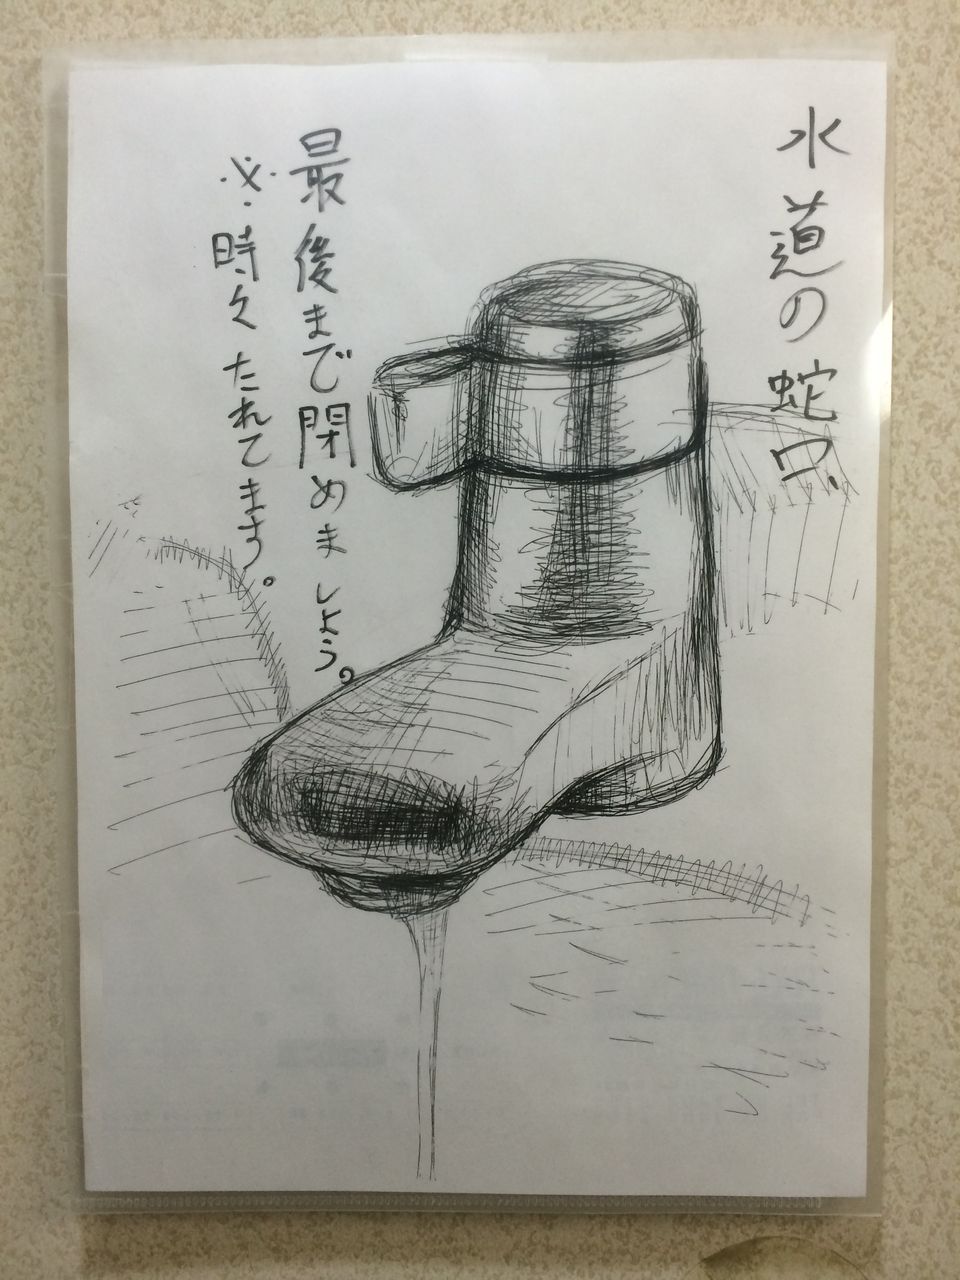 水道の蛇口、
最後まで閉めましょう。
※時々たれてます。